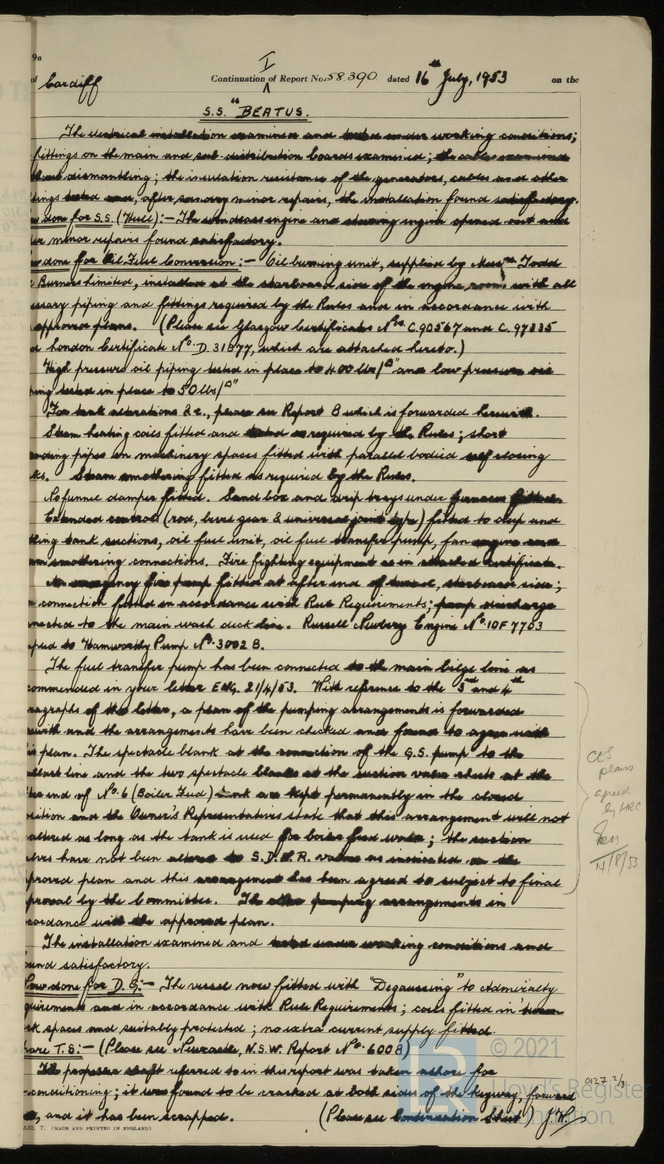 9a
of Cardiff Continuation I of Report No. 58.390 dated 16th July, 1953 on the
S.S. "BEATUS.
The electrical installation examined and tested under working conditions;
fittings on the main and sub-distribution boards examined; the cables examined
dismantling; the insulation resistance of the generators, cables and other
tings tested and, after sundry minor repairs, the installation found satisfactory.
done for S.S. (Hull):- The windlass engine and steering engine opened out and
minor repairs found satisfactory.
done for Oil Fuel Conversion:- Oil burning unit, supplied by Messrs Todd
Burners Limited, installed at the starboard side of the engine room with all
ssary piping and fittings required by the Rules and in accordance with
approved plans. (Please see Glasgow Certificates Nos. C.90567 and C.97835
d London Certificate No. D.31877, which are attached hereto.)
High pressure oil piping tested in place to 400 lbs/□" and low pressure oil
ping tested in place to 50 lbs/□"
For tank alterations &c., please see Report 8 which is forwarded herewith.
Steam heating coils fitted and tested as required by the Rules; short
nding pipes in machinery spaces fitted with parallel bodied self closing
ks. Steam smothering fitted as required by the Rules.
No funnel damper fitted. Sand box and drip trays under furnaces fitted.
Extended control (rod, bevel gear & universal joint type) fitted to deep and
tling tank suctions, oil fuel unit, oil fuel transfer pump, fan engine and
am smothering connections. Fire fighting equipment as in attached certificate.
An emergency fire pump fitted at after end of tunnel, starboard side;
connection fitted in accordance with Rule Requirements; pump discharge
nnected to the main wash deck line. Russell Newbery Engine No. 10F7703
upled to Hamworthy Pump No. 3002 B.
The fuel transfer pump has been connected to the main bilge line as
commended in your letter ENG. 21/4/53. With reference to the 3rd and 4th
ragraphs of the letter, a plan of the pumping arrangements is forwarded
ewith and the arrangements have been checked and found to agree with
is plan. The spectacle blank at the connection of the G.S. pump to the
allast line and the two spectacle blanks at the suction valve chests at the
ter end of No. 6 (Boiler Feed) tank are kept permanently in the closed
osition and the Owner's Representatives state that this arrangement will not
altered as long as the tank is used for boiler feed water; the suction
lves have not been altered to S.D.N.R. valves as indicated on the
pproved plan and this arrangement has been agreed to subject to final
pproval by the Committee. The other pumping arrangements in
cordance with the approved plan.
The installation examined and tested under working conditions and
ound satisfactory.
Now done for D.G:- The vessel now fitted with "Degaussing" to Admiralty
quirements and in accordance with Rule Requirements; coils fitted in 'tween
ck spaces and suitably protected; no extra current supply fitted.
pare T.S:- (Please see Newcastle, N.S.W. Report No. 6008)
The propeller shaft referred to in this report was taken ashore for
conditioning; it was found to be cracked at both sides of the keyway, forward
, and it has been scrapped. (Please see Continuation Sheet)
plans
agreed
by
14/8/53
0127 2/3
T. (MADE AND PRINTED IN ENGLAND)
© 2021
Lloyd's Register
Foundation